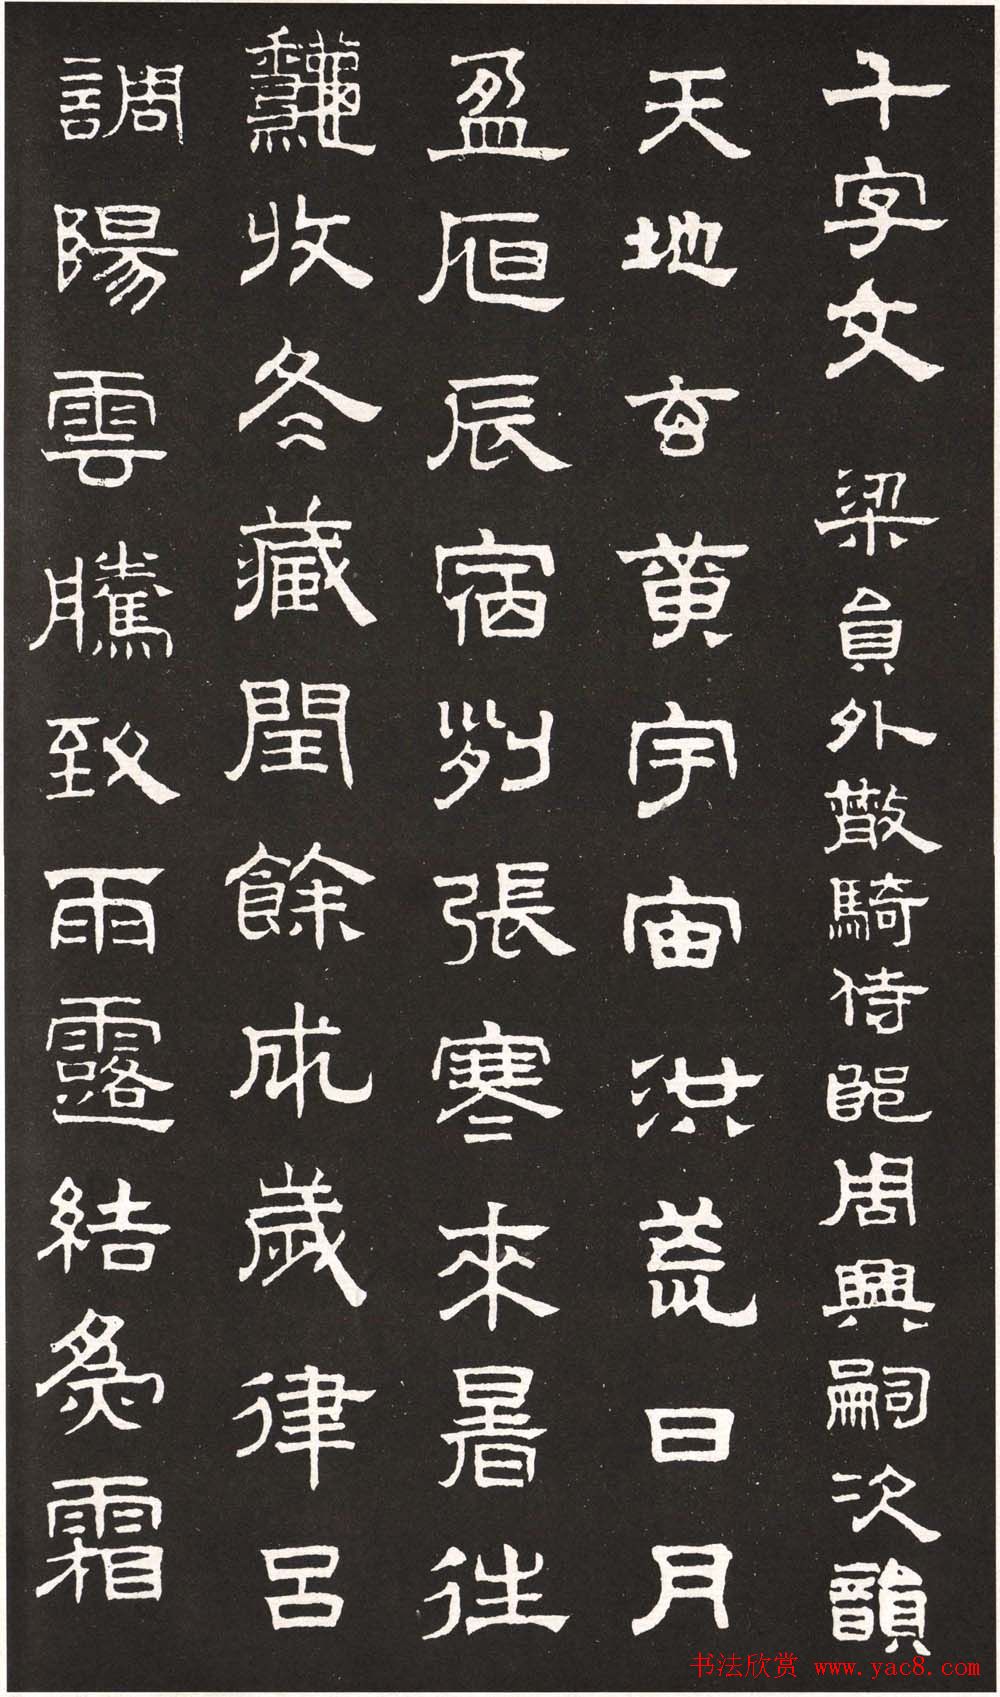 千字文 梁員外散騎侍郎周興嗣次韻
天地玄黃宇宙洪荒日月
盈昃辰宿列張寒來暑往
龝收冬藏閏餘成歲律呂
調陽雲騰致雨露結為霜
书法欣赏 www.yac8.com